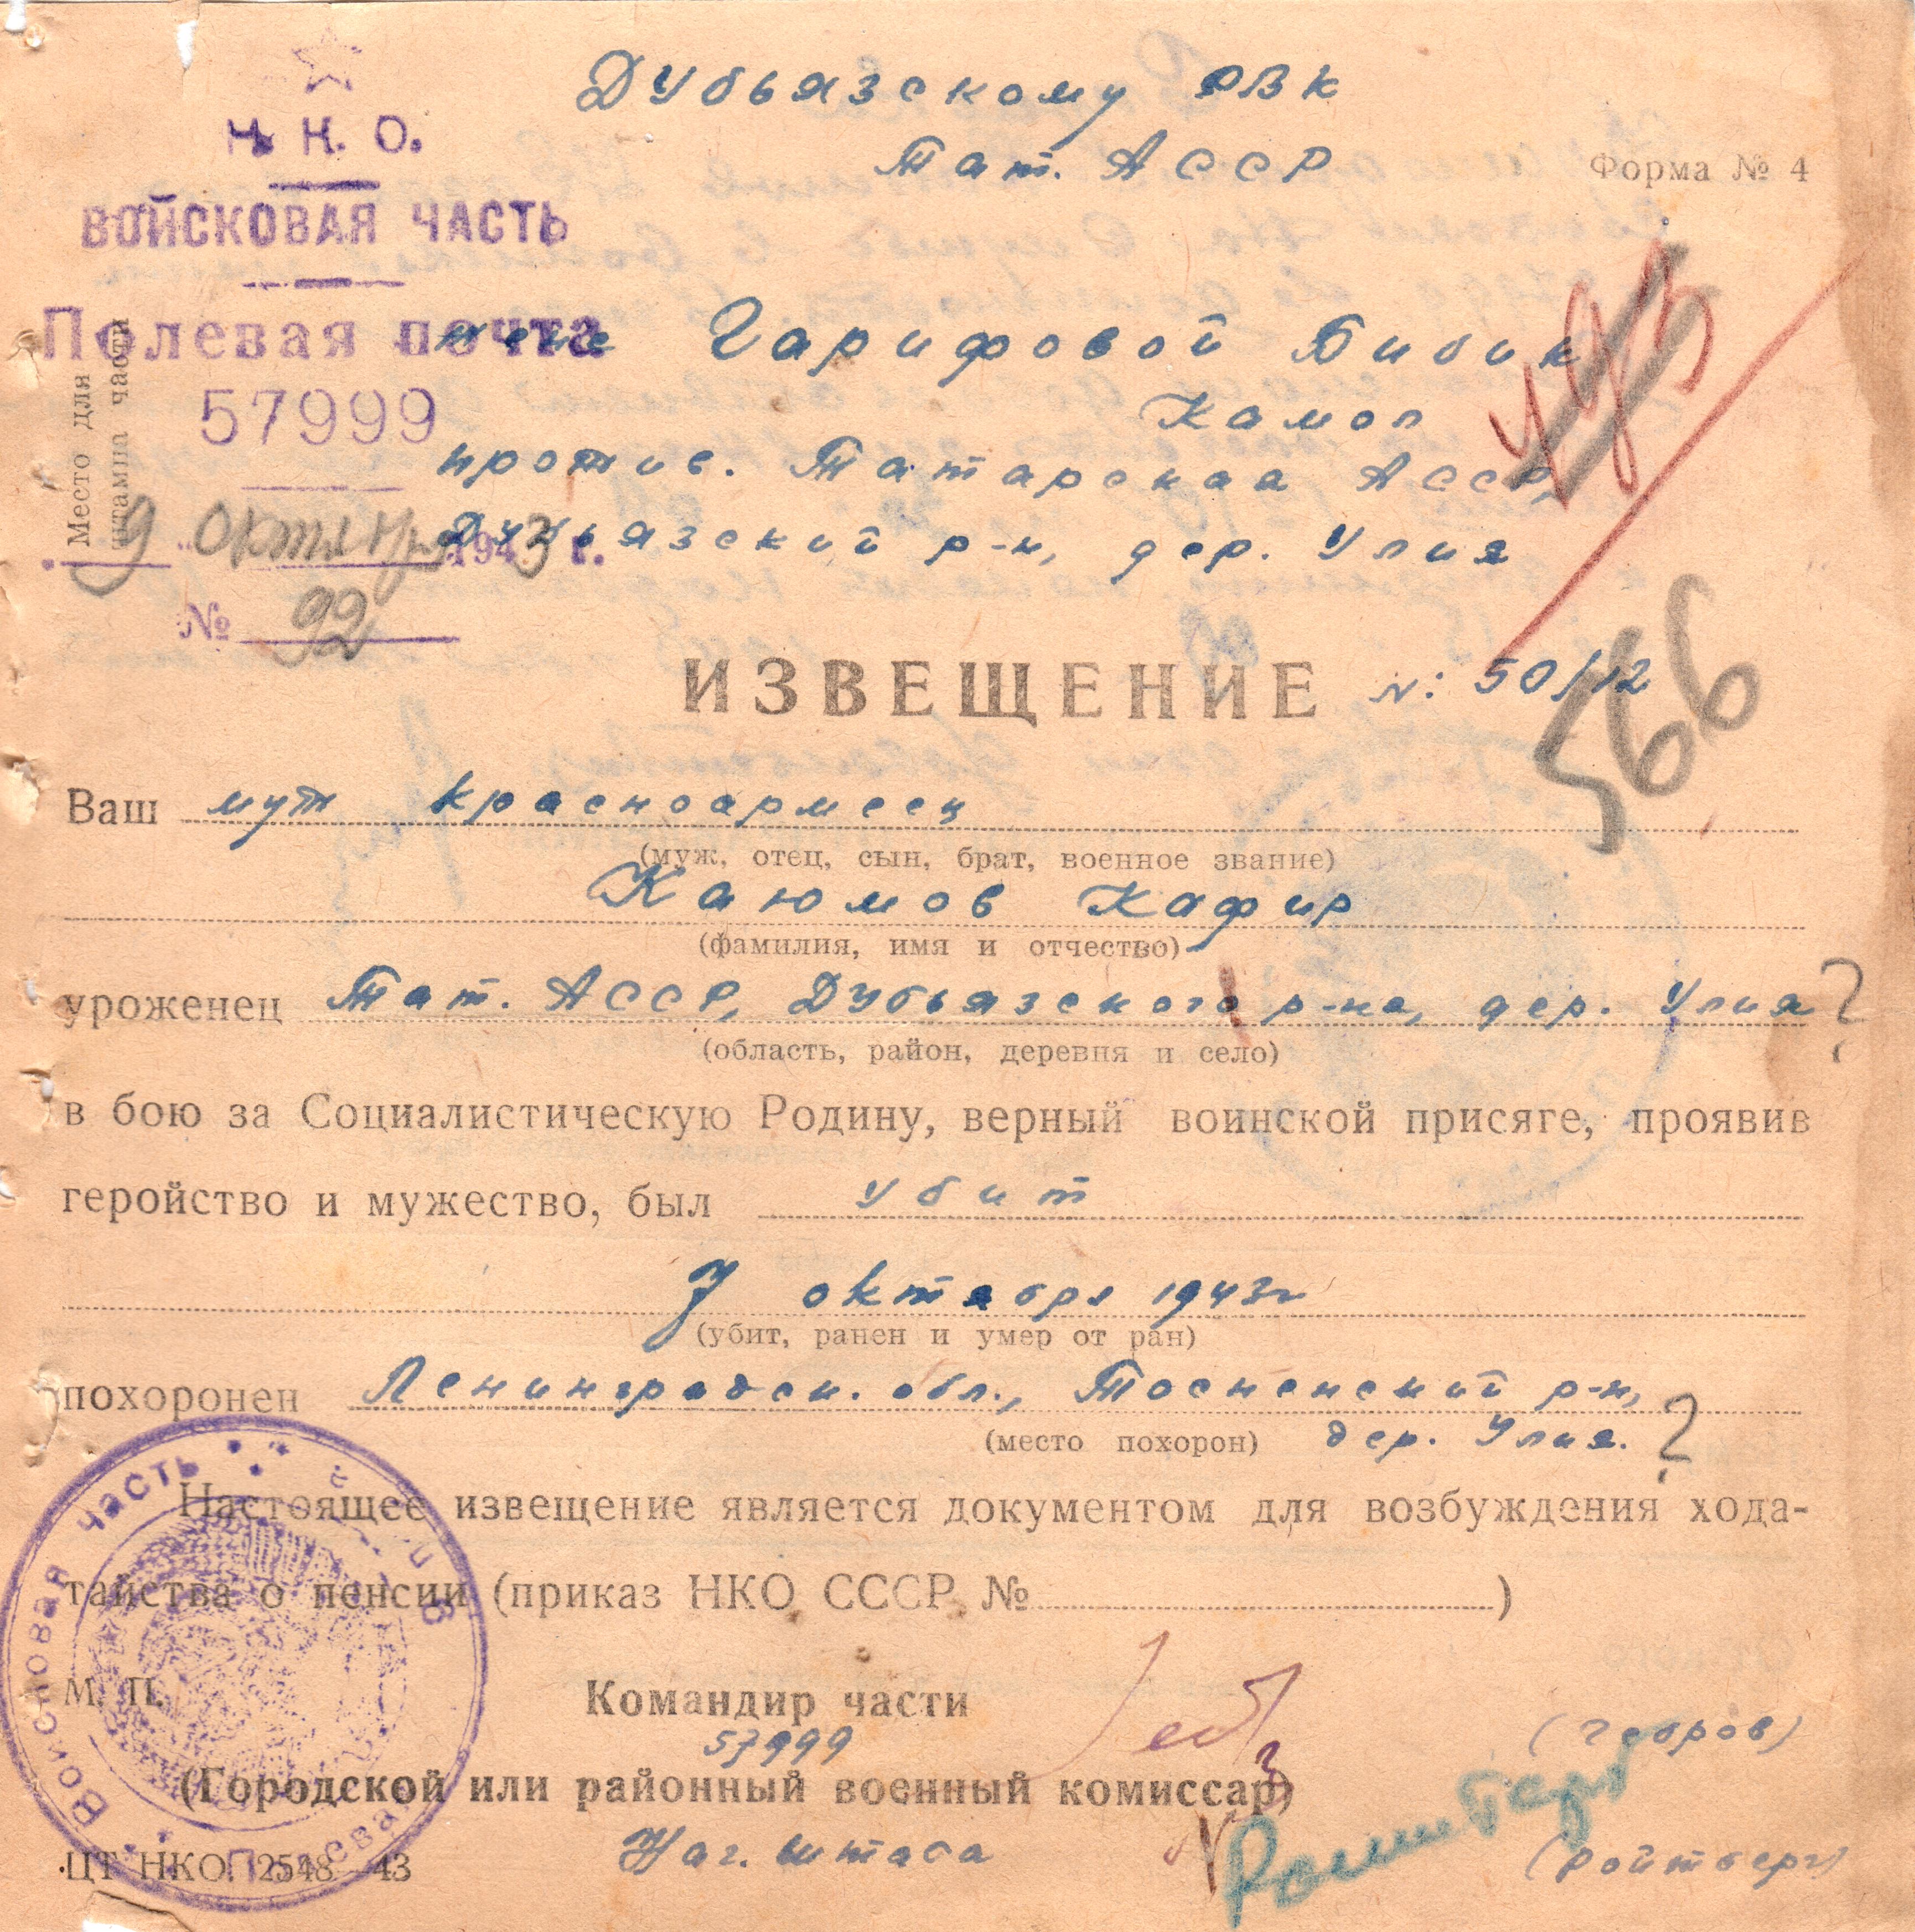 Дубьязскому РВК
Тат. АССР
Форма № 4
Н. К. О.
ВОЙСКОВАЯ ЧАСТЬ
Полевая почта
57999
Место для штампа части
9 октября 1943 г.
№ 92
жене Гарифовой Биби
Камал
прожив. Татарская АССР,
Дубьязский р-н, дер. Улия
493
566
ИЗВЕЩЕНИЕ N: 50/12
Ваш муж красноармеец
(муж, отец, сын, брат, военное звание)
Каюмов Кафир
(фамилия, имя и отчество)
уроженец Тат. АССР, Дубьязского р-на, дер. Улия ?
(область, район, деревня и село)
в бою за Социалистическую Родину, верный воинской присяге, проявив
геройство и мужество, был убит
7 октября 1943г
(убит, ранен и умер от ран)
похоронен Ленинградск. обл., Тосненский р-н,
(место похорон) дер. Улия. ?
Настоящее извещение является документом для возбуждения хода-
тайства о пенсии (приказ НКО СССР № )
Войсковая часть Полевая
М. П.
Командир части
57999 (Гебров)
(Городской или районный военный комиссар)
Нач. штаба Ройтберг (Ройтберг)
ЦТ НКО. 2548—43